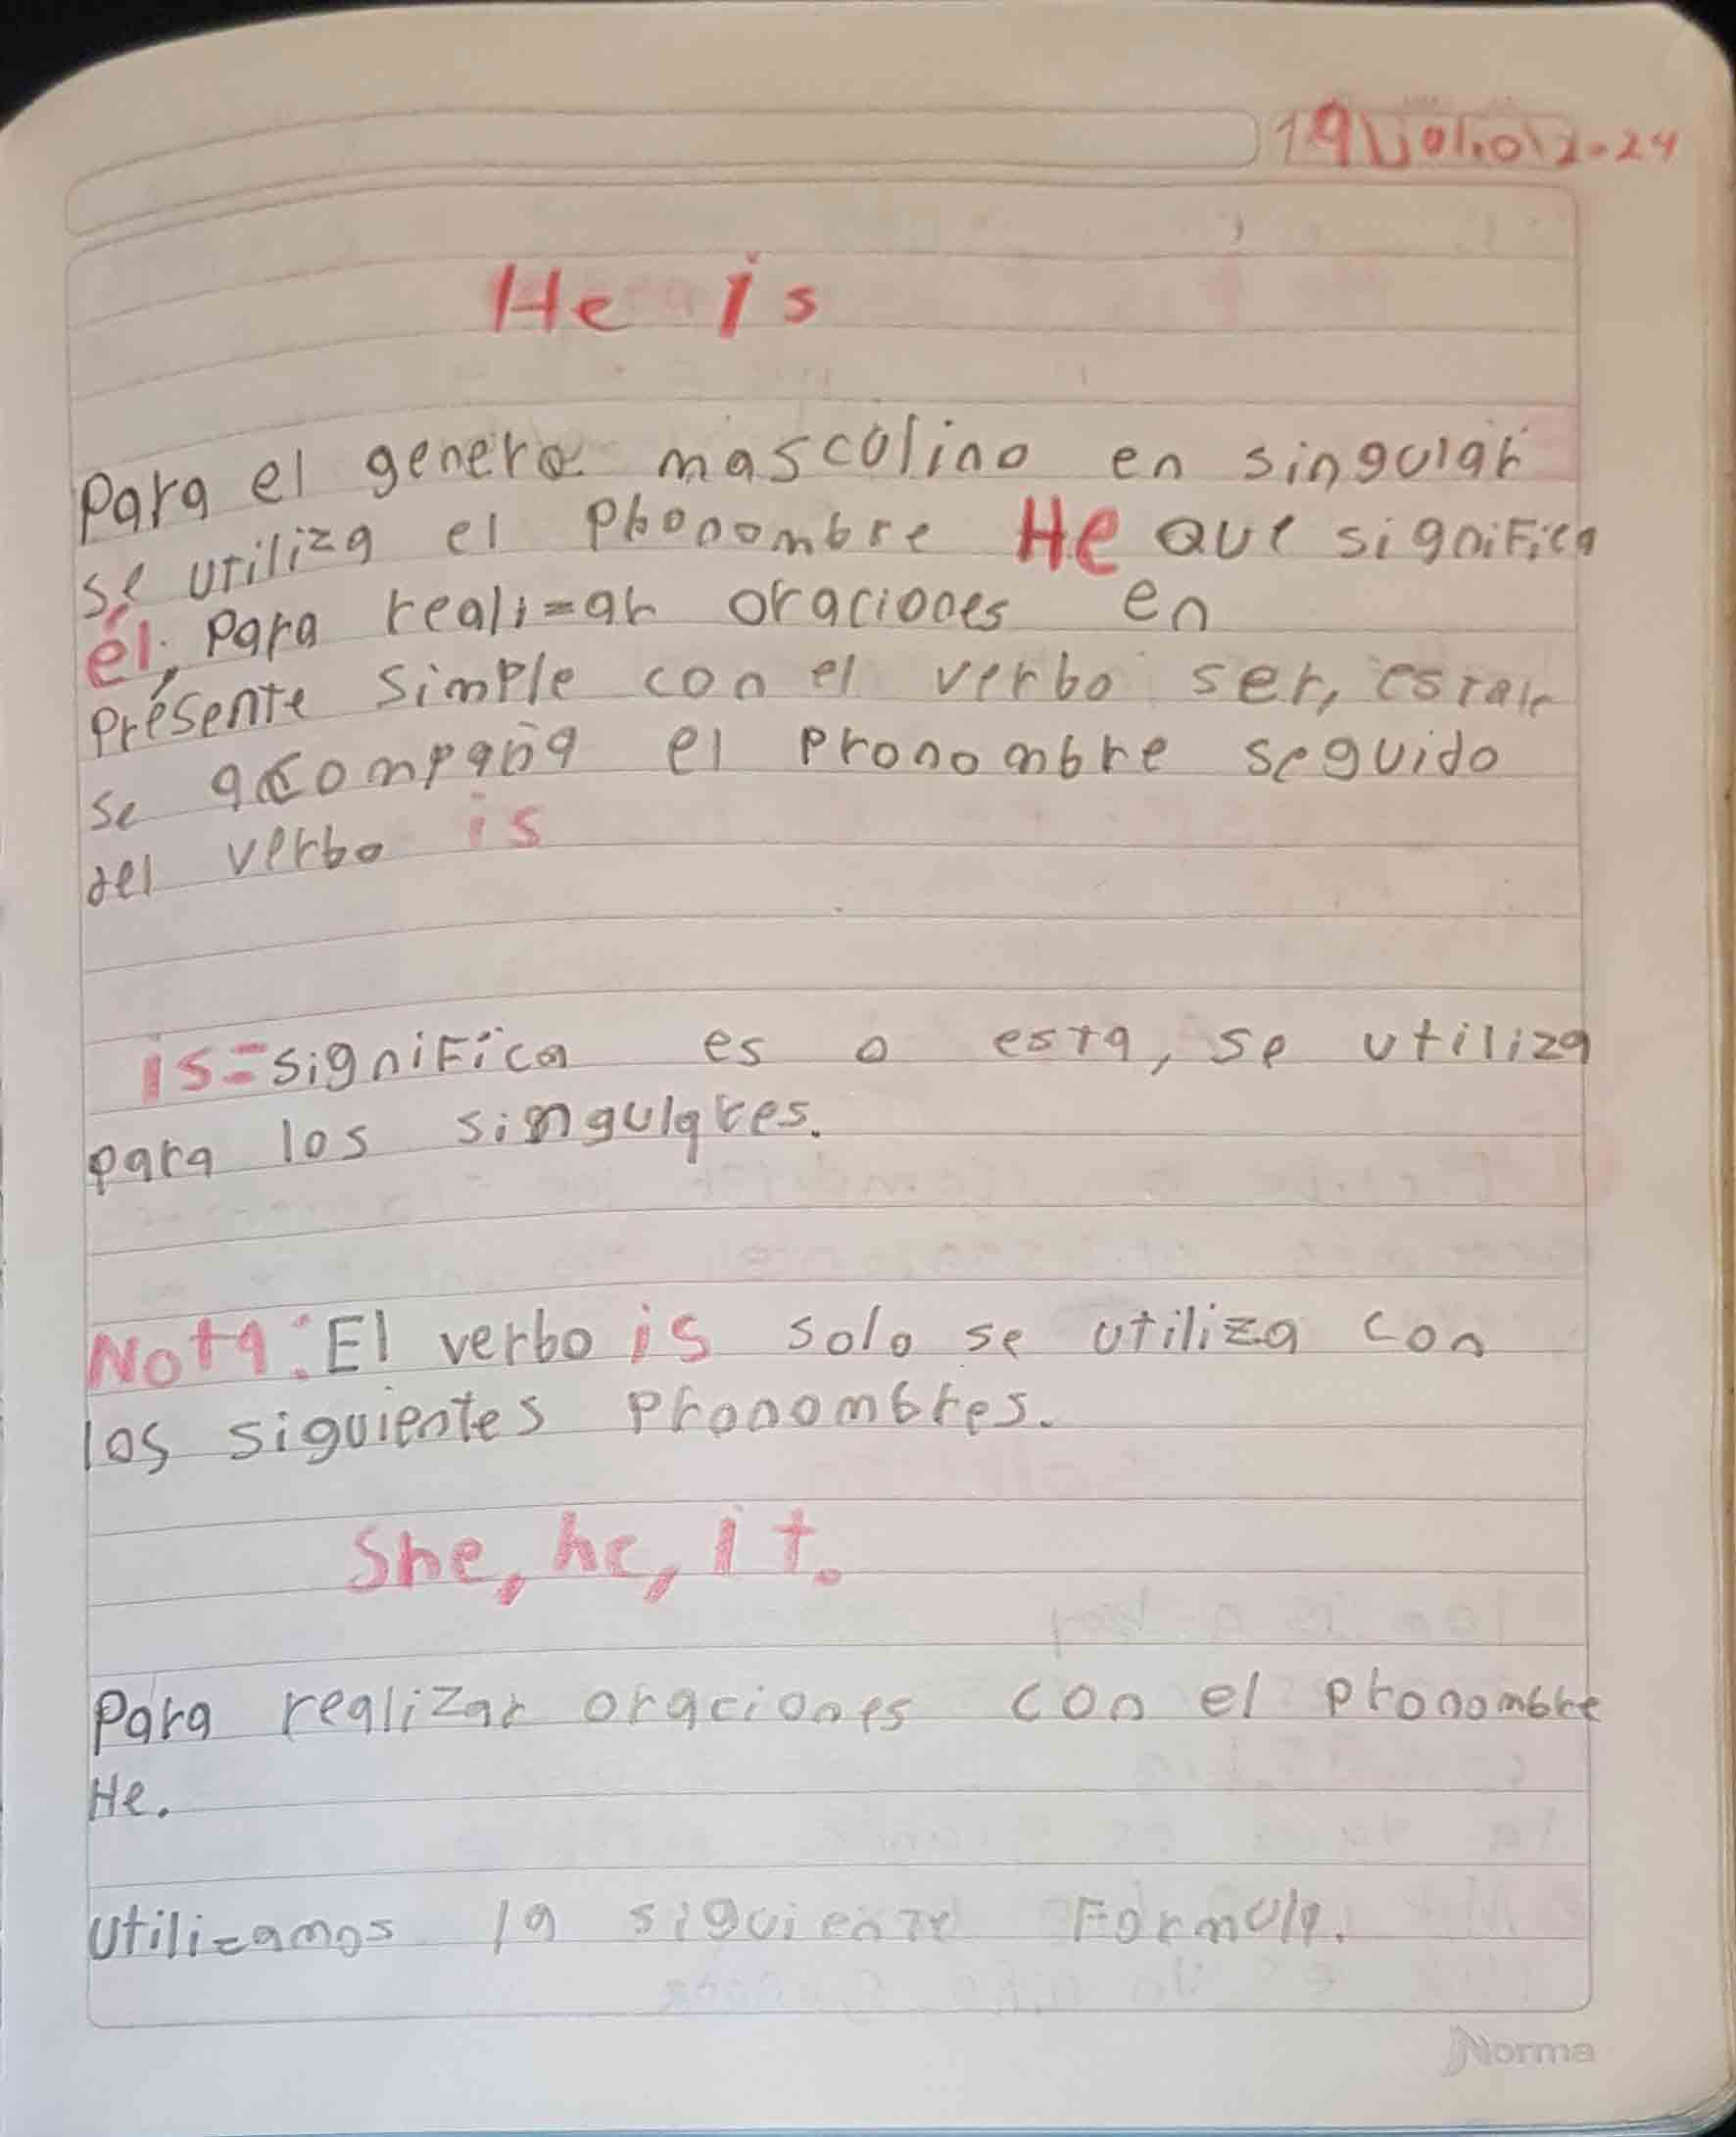 19\julio\2024
He is
Para el genero masculino en singular
se utiliza el pronombre He que significa
él, para realizar oraciones en
presente simple con el verbo ser, estar
se acompaña el pronombre seguido
del verbo is
is=significa es o esta, se utiliza
para los singulares.
Nota: El verbo is solo se utiliza con
los siguientes pronombres.
She, he, it.
Para realizar oraciones con el pronombre
He.
utilizamos la siguiente Formula.
Norma